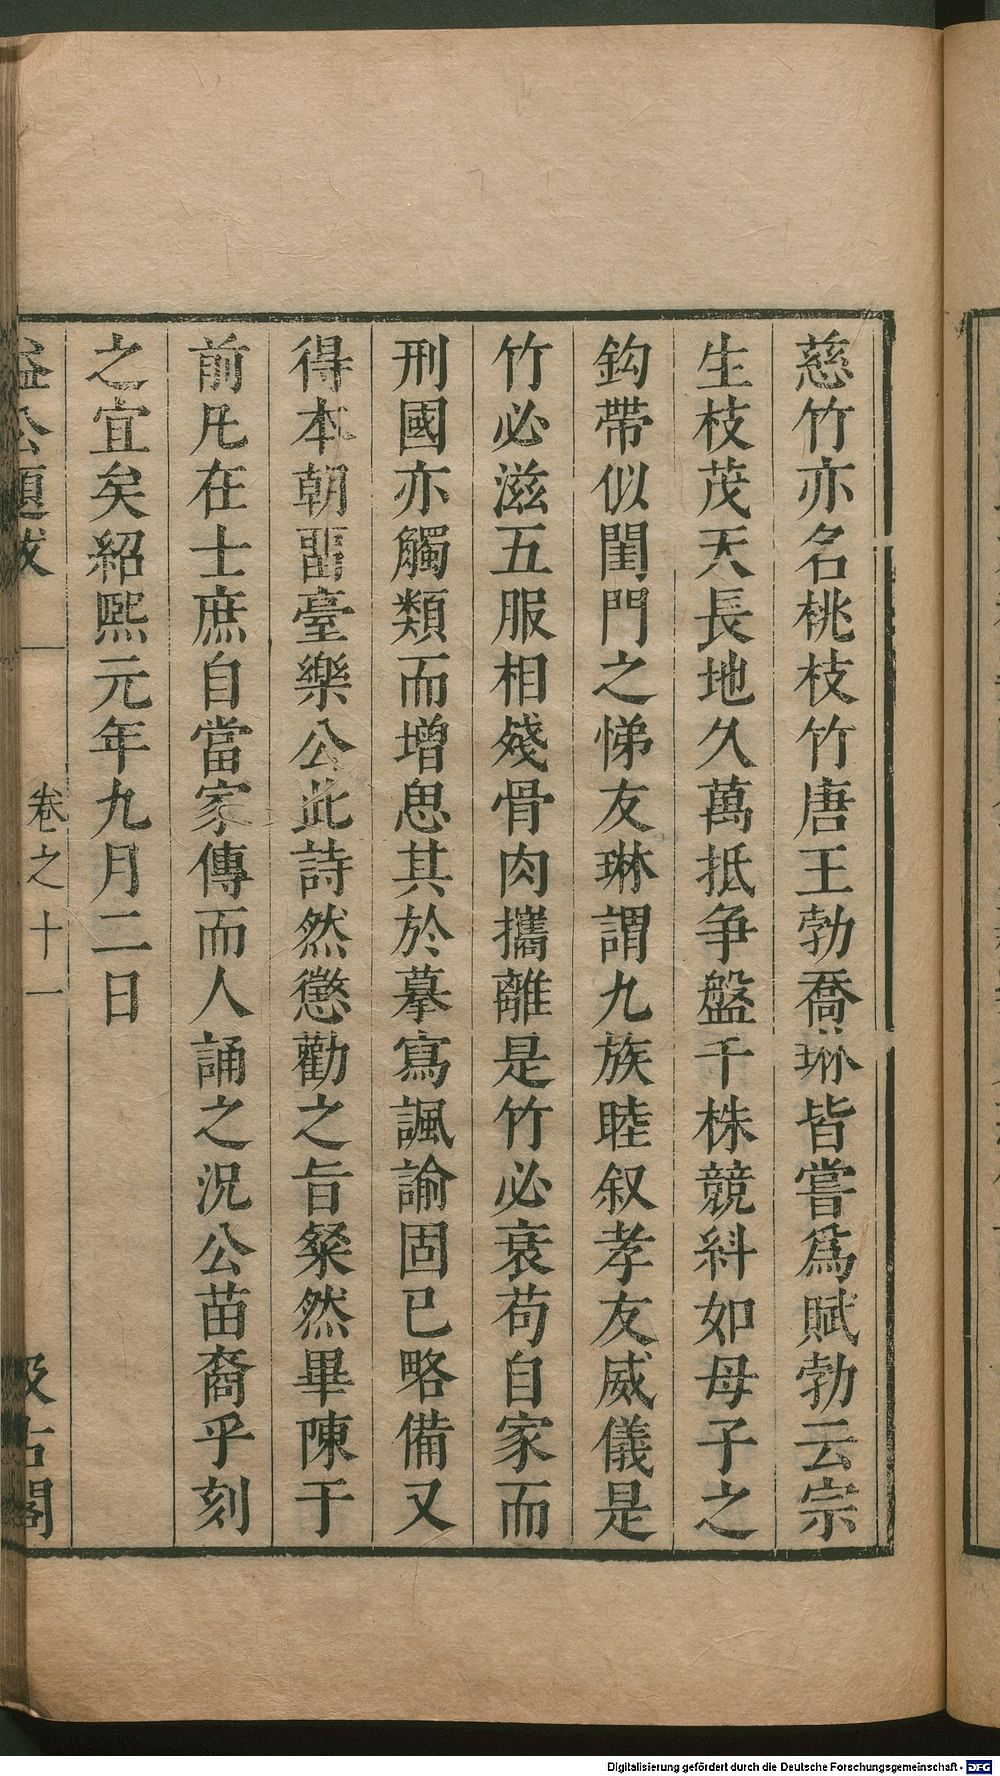 慈竹亦名桃枝竹唐王勃喬琳皆嘗爲賦勃云宗
生枝茂天長地久萬抵争盤千株競糾如母子之
鈎帶似閨門之悌友琳謂九族睦叙孝友威儀是
竹必滋五服相殘骨肉攜離是竹必衰苟自家而
刑國亦觸類而增思其於摹寫諷諭固已略備又
得本朝畱臺樂公此詩然懲勸之旨粲然畢陳于
前凡在士庶自當家傳而人誦之況公苗裔乎刻
之宜矣紹熙元年九月二日
益公題跋 卷之十一 汲古閣
Digitalisierung gefördert durch die Deutsche Forschungsgemeinschaft - DFG